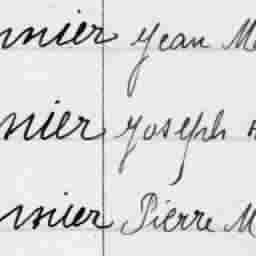 nier Jean M
nier Joseph
nier Pierre M